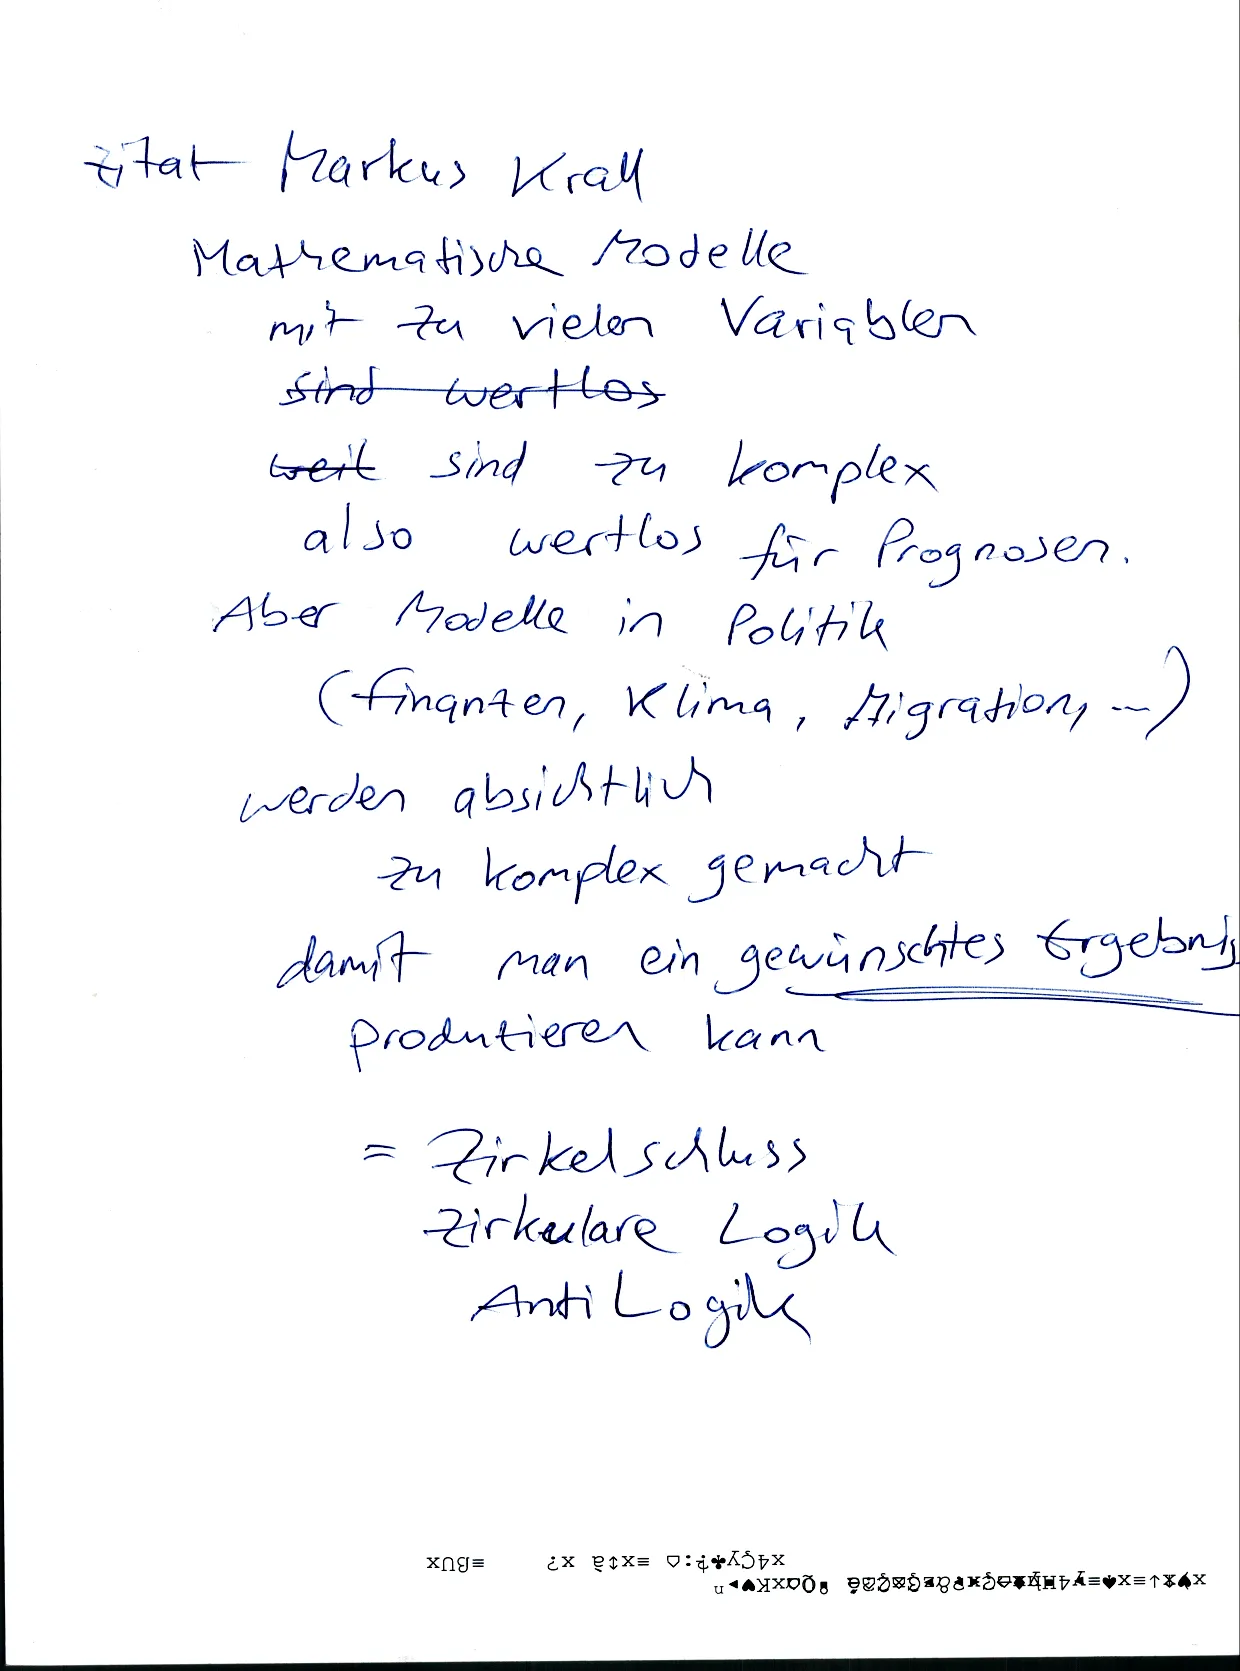 Zitat Markus Krall
Mathematische Modelle
mit zu vielen Variablen
sind wertlos
weil sind zu komplex
also wertlos für Prognosen.
Aber Modelle in Politik
(Finanzen, Klima, Migration, ...)
werden absichtlich
zu komplex gemacht
damit man ein gewünschtes Ergebnis
produzieren kann
= Zirkelschluss
Zirkulare Logik
Anti Logik